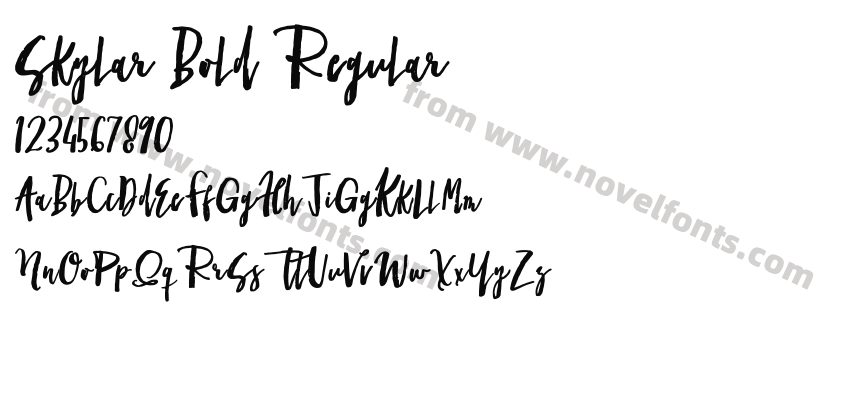 Skylar Bold Regular
1234567890
AaBbCcDdEeFfGgHhJiGgKkLlMm
NnOoPpQqRrSsTtUuVvWwXxYyZz
from www.novelfonts.com
from www.novelfonts.com